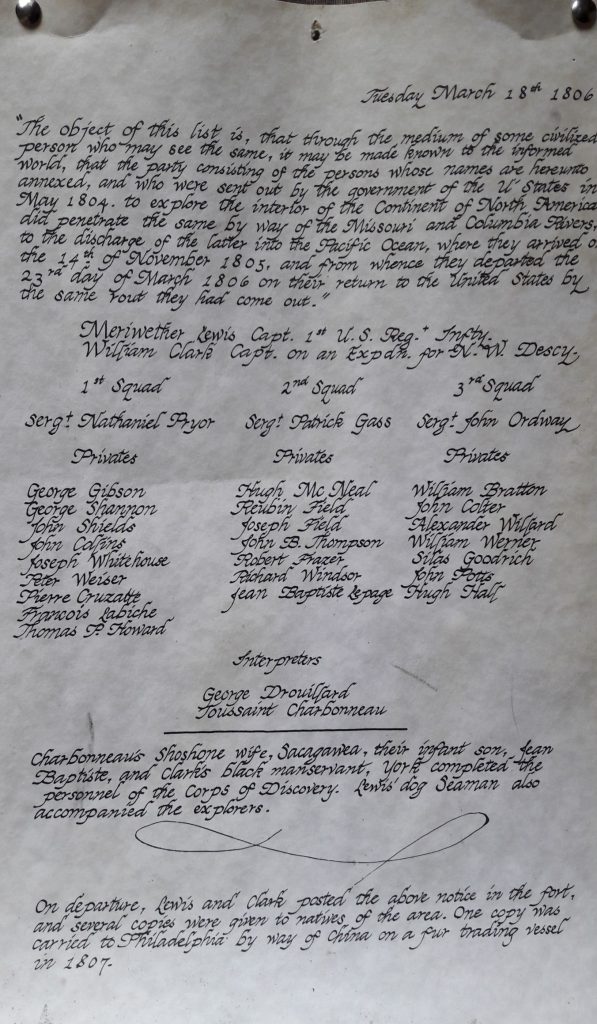 Tuesday March 18th 1806
"The object of this list is, that through the medium of some civilized
person who may see the same, it may be made known to the informed
world, that the party consisting of the persons whose names are hereunto
annexed, and who were sent out by the government of the U' States in
May 1804. to explore the interior of the Continent of North America
did penetrate the same by way of the Missouri and Columbia Rivers,
to the discharge of the latter into the Pacific Ocean, where they arrived o
the 14th of November 1805, and from whence they departed the
23rd day of March 1806 on their return to the United States by
the same rout they had come out."
Meriwether Lewis Capt. 1st U.S. Reg.t Infty.
William Clark Capt. on an Expdn. for N. W. Descy.
1st Squad 2nd Squad 3rd Squad
Sergt. Nathaniel Pryor Sergt. Patrick Gass Sergt. John Ordway
Privates Privates Privates
George Gibson Hugh Mc Neal William Bratton
George Shannon Reubin Field John Colter
John Shields Joseph Field Alexander Willard
John Collins John B. Thompson William Werner
Joseph Whitehouse Robert Frazer Silas Goodrich
Peter Weiser Richard Windsor John Potts
Pierre Cruzatte Jean Baptiste Lepage Hugh Hall
Francois Labiche
Thomas P. Howard
Interpreters
George Drouillard
Toussaint Charbonneau
Charbonneau's Shoshone wife, Sacagawea, their infant son, Jean
Baptiste, and Clark's black manservant, York completed the
personnel of the Corps of Discovery. Lewis' dog Seaman also
accompanied the explorers.
On departure, Lewis and Clark posted the above notice in the fort,
and several copies were given to natives of the area. One copy was
carried to Philadelphia by way of China on a fur trading vessel
in 1807.